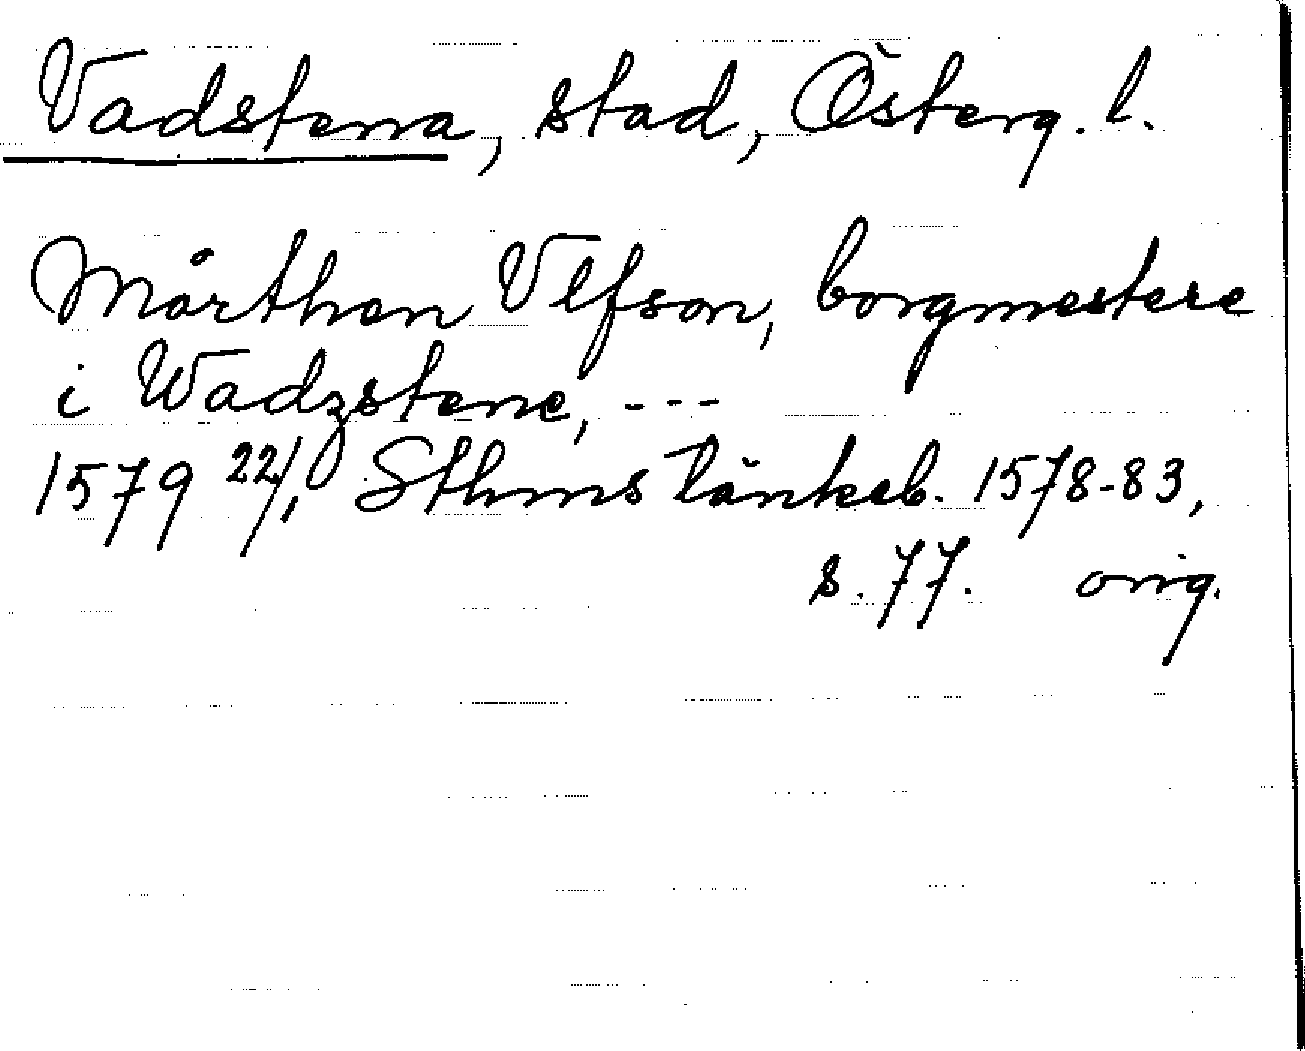 Vadstena, stad, Österg. l.
Mårthen Vlfson, borgmestere
i Wadzstene, ---
1579 22/1, Sthms tänkeb. 1578-83,
s. 77. orig.